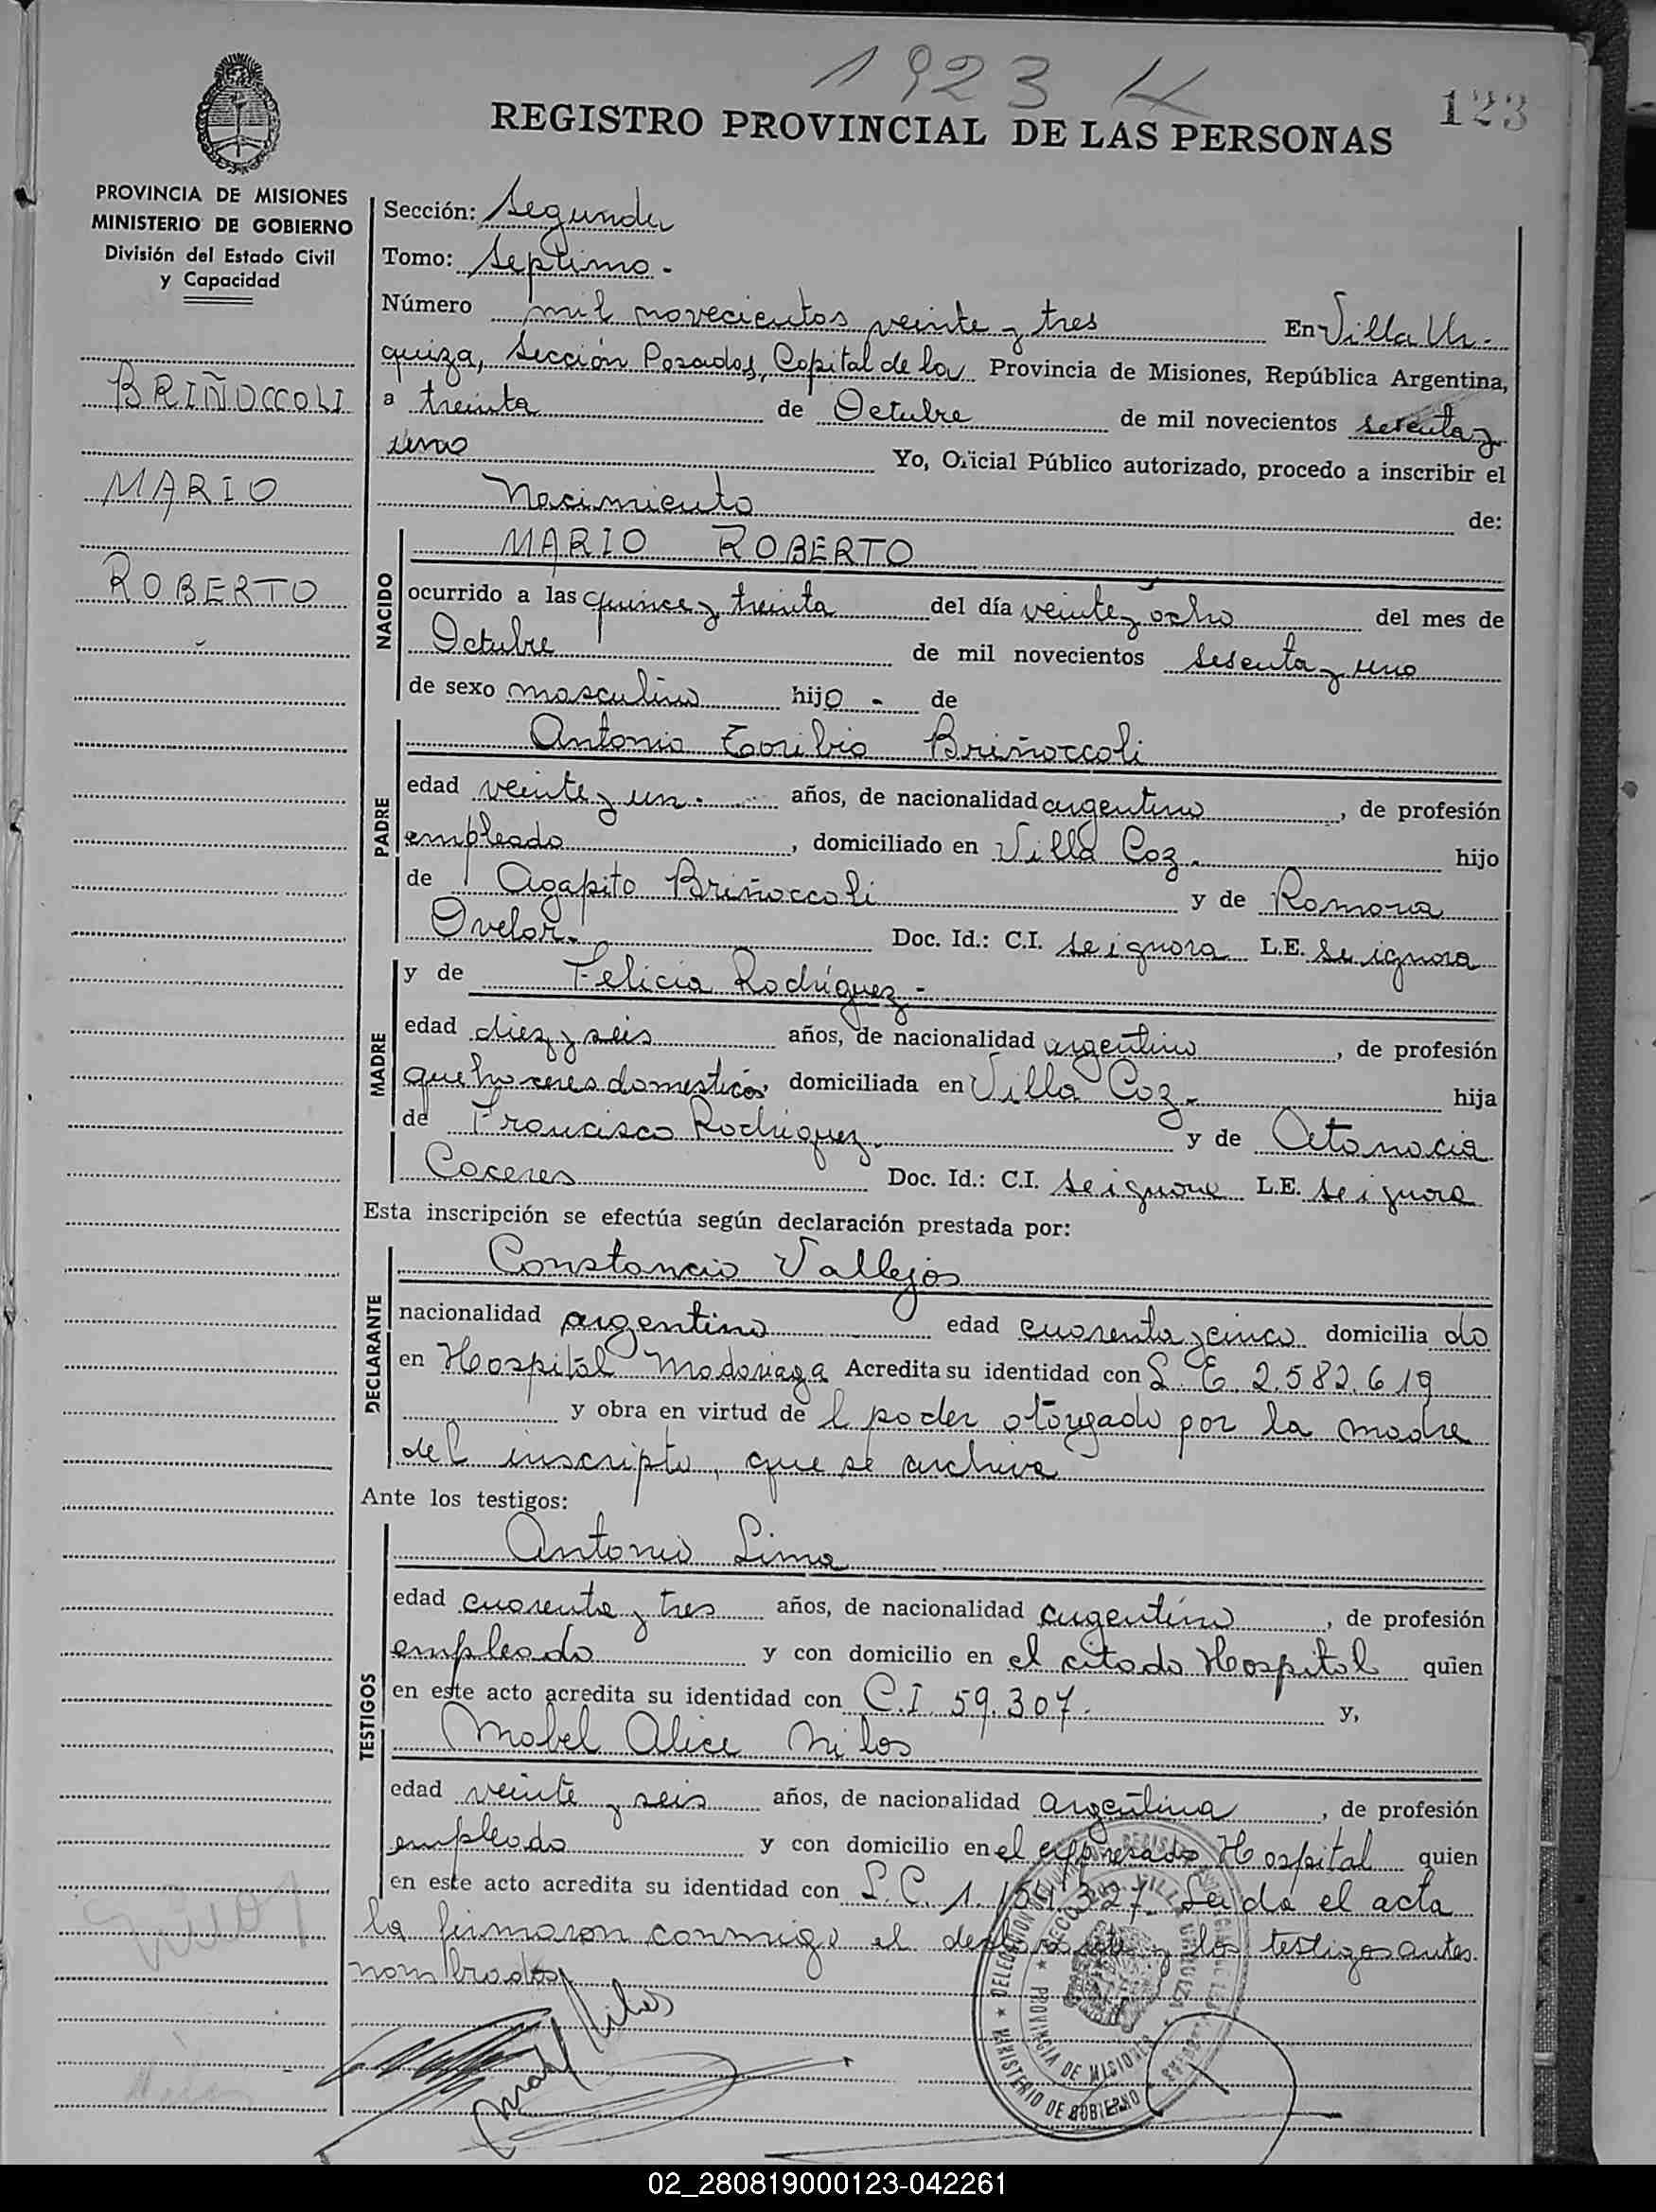 1923
123
REGISTRO PROVINCIAL DE LAS PERSONAS
PROVINCIA DE MISIONES
MINISTERIO DE GOBIERNO
División del Estado Civil
y Capacidad
BRIÑOCCOLI
MARIO
ROBERTO
Sección: Segunda
Tomo: Septimo.-
Número mil novecientos veinte y tres En Villa Ur-
quiza, Sección Posadas, Capital de la Provincia de Misiones, República Argentina,
a treinta de Octubre de mil novecientos sesenta y
uno Yo, Oficial Público autorizado, procedo a inscribir el
Nacimiento de:
NACIDO
MARIO ROBERTO
ocurrido a las quince y treinta del día veinte y ocho del mes de
Octubre de mil novecientos sesenta y uno
de sexo masculino hijo - de
PADRE
Antonio Toribio Briñoccoli
edad veinte y un.- años, de nacionalidad argentino, de profesión
empleado, domiciliado en Villa Coz.- hijo
de Agapito Briñoccoli y de Romona
Ovelar.- Doc. Id.: C.I. se ignora L.E. se ignora
MADRE
y de Felicia Rodríguez.-
edad diez y seis años, de nacionalidad argentino, de profesión
quehaceres domesticos, domiciliada en Villa Coz.- hija
de Francisco Rodriguez.- y de Atanacia
Caceres Doc. Id.: C.I. se ignora L.E. se ignora
Esta inscripción se efectúa según declaración prestada por:
DECLARANTE
Constancio Vallejos
nacionalidad argentino edad cuarenta y cinco domicilia do
en Hospital Madariaga Acredita su identidad con L.E. 2.582.619
y obra en virtud de l poder otorgado por la madre
del inscripto, que se archiva
Ante los testigos:
TESTIGOS
Antonio Lima
edad cuarenta y tres años, de nacionalidad argentino, de profesión
empleado y con domicilio en el citado Hospital quien
en este acto acredita su identidad con C.I. 59.307.- y,
Mabel Alice Milos
edad veinte y seis años, de nacionalidad argentina, de profesión
empleada y con domicilio en el expresado Hospital quien
en este acto acredita su identidad con L.C. 1. 327. Leida el acta
la firmaron conmigo el declarante y los testigos antes
nombrados
Mabel Milos
PROVINCIA DE MISIONES
MINISTERIO DE GOBIERNO
02_280819000123-042261